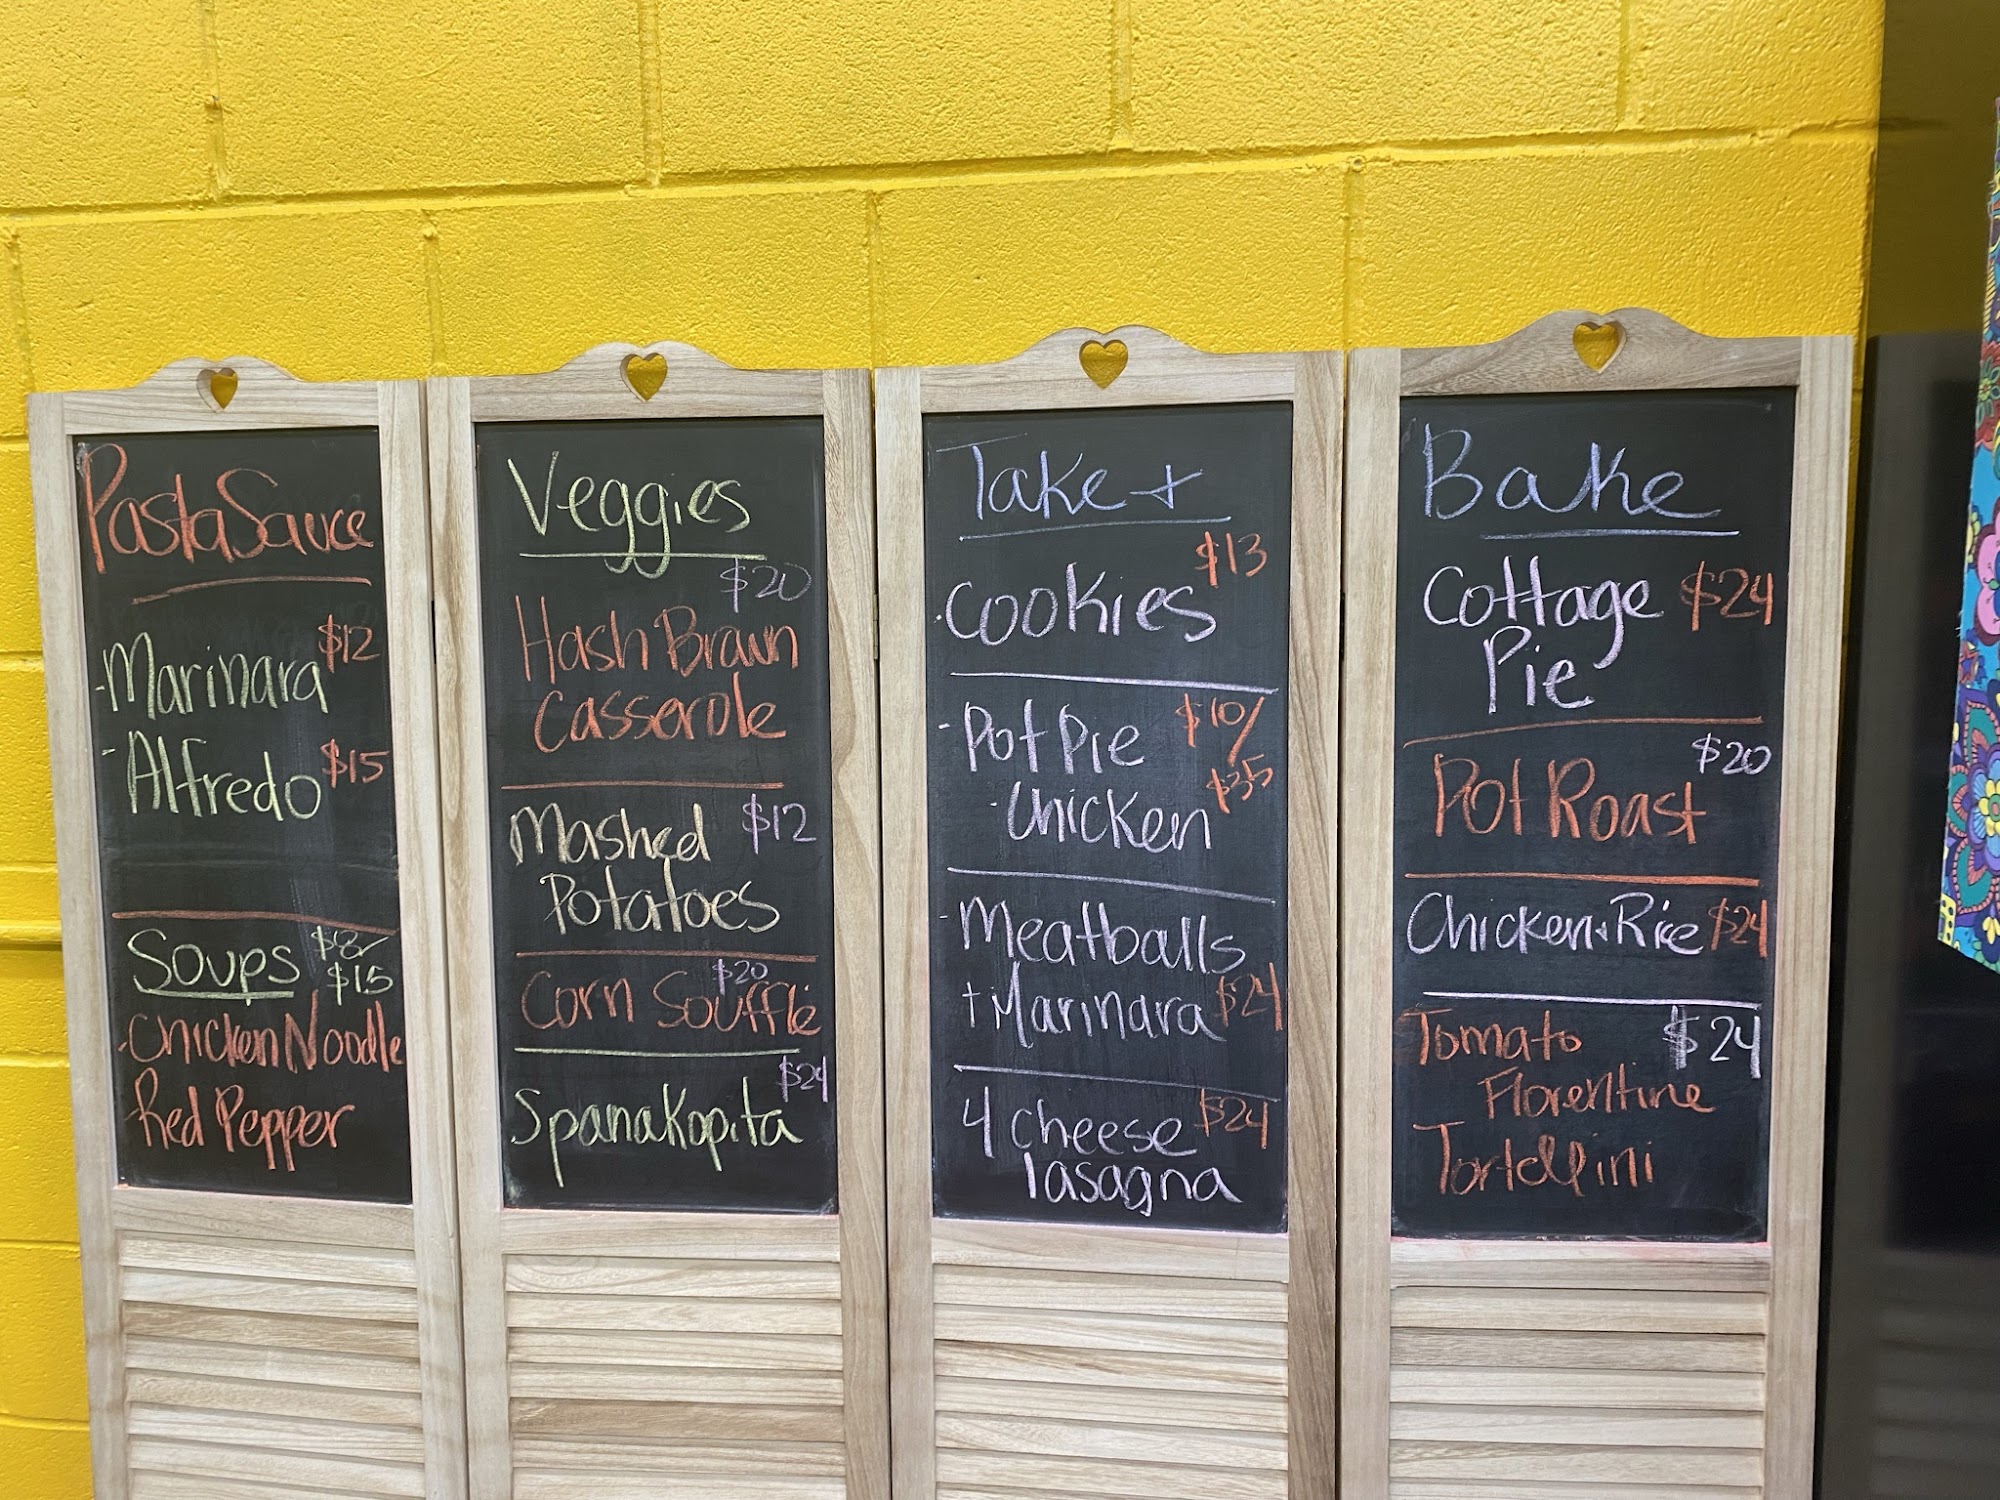 Pasta Sauce
- Marinara $12
- Alfredo $15
Soups $8/
$15
- Chicken Noodle
- Red Pepper
Veggies
$20
Hash Brown
Casserole
Mashed $12
Potatoes
$20
Corn Soufflé
$24
Spanakopita
Take +
$13
- Cookies
- Pot Pie $10/
- Chicken $35
- Meatballs
+ Marinara $24
4 cheese $24
lasagna
Bake
Cottage $24
Pie
$20
Pot Roast
Chicken + Rice $24
Tomato $24
Florentine
Tortellini